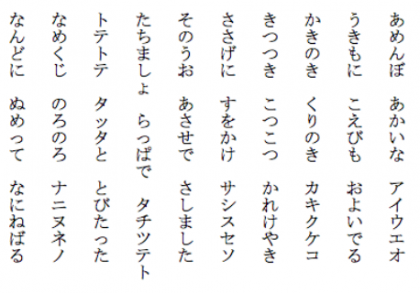 あめんぼ　あかいな　アイウエオ
うきもに　こえびも　およいでる
かきのき　くりのき　カキクケコ
きつつき　こつこつ　かれけやき
ささげに　すをかけ　サシスセソ
そのうお　あさせで　さしました
たちましょ　らっぱで　タチツテト
トテトテ　タッタと　とびたった
なめくじ　のろのろ　ナニヌネノ
なんどに　ぬめって　なにねばる